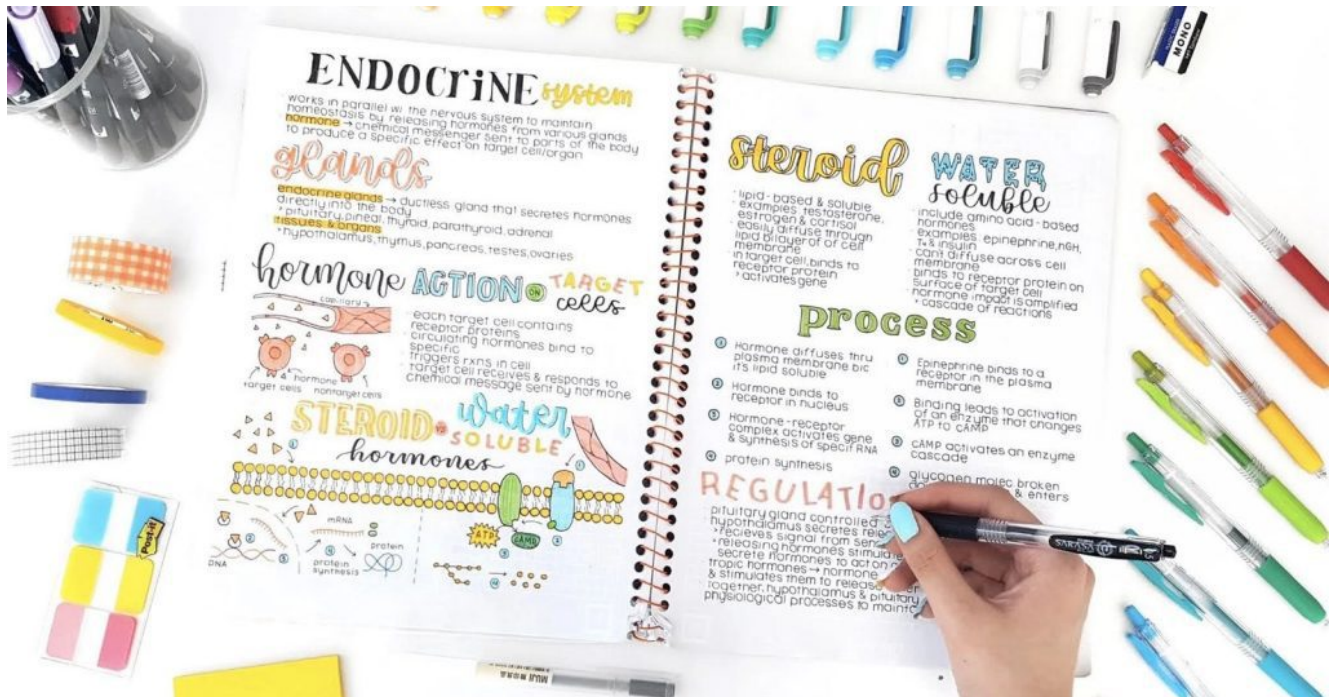 ENDOCRINE system
works in parallel w/ the nervous system to maintain
homeostasis by releasing hormones from various glands
hormone → chemical messenger sent to parts of the body
to produce a specific effect on target cell/organ
glands
endocrine glands → ductless gland that secretes hormones
directly into the body
pituitary, pineal, thyroid, parathyroid, adrenal
tissues & organs
hypothalamus, thymus, pancreas, testes, ovaries
hormone ACTION ON TARGET cells
capillary
target cells
hormone
nontarget cells
each target cell contains
receptor proteins
circulating hormones bind to
specific
triggers rxns in cell
target cell receives & responds to
chemical message sent by hormone
STEROID vs water SOLUBLE
hormones
ATP
cAMP
DNA
mRNA
protein
synthesis
protein
steroid
· lipid-based & soluble
· examples testosterone,
estrogen & cortisol
· easily diffuse through
lipid bilayer of cell
membrane
· in target cell, binds to
receptor protein
activates gene
WATER
soluble
· include amino acid-based
hormones
· examples epinephrine, hGH,
T4 & insulin
· can't diffuse across cell
membrane
· binds to receptor protein on
surface of target cell
· hormone impact is amplified
cascade of reactions
process
1 Hormone diffuses thru
plasma membrane b/c
it's lipid soluble
2 Hormone binds to
receptor in nucleus
3 Hormone-receptor
complex activates gene
& synthesis of specif RNA
4 protein synthesis
1 Epinephrine binds to a
receptor in the plasma
membrane
2 Binding leads to activation
of an enzyme that changes
ATP to cAMP
3 cAMP activates an enzyme
cascade
4 glycogen molec broken
& enters
REGULATIO
pituitary gland controlled
hypothalamus secretes
recieves signal from
releasing hormones
secrete hormones to action
tropic hormones → hormone
& stimulates them to release
together, hypothalamus & pituitary
physiological processes to
MONO
Post-it
SARASA
MUJI 無印良品